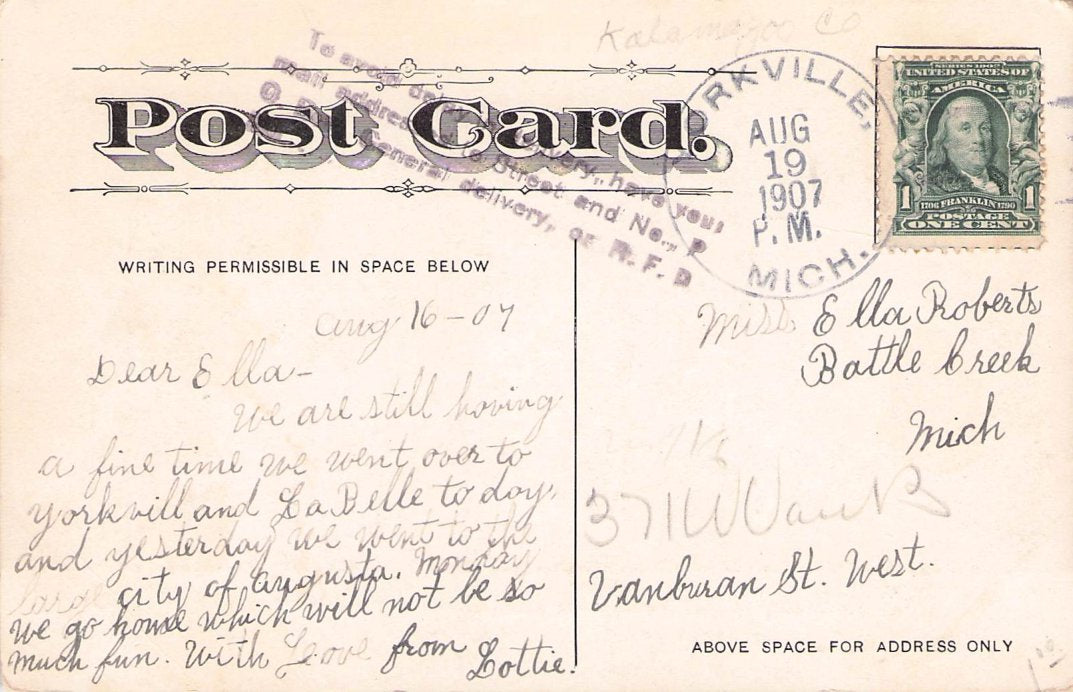 Kalamazoo Co
Post Card.
To avoid delay in delivery, have your
mail addressed to Street and No., P
O. General delivery, or R. F. D
RKVILLE,
AUG
19
1907
P.M.
MICH.
SERIES 1902
UNITED STATES OF
AMERICA
1 1706 FRANKLIN 1790 1
POSTAGE
ONE CENT
WRITING PERMISSIBLE IN SPACE BELOW
Aug 16-07
Dear Ella-
We are still having
a fine time we went over to
yorkvill and La Belle to day,
and yesterday we went to the
large city of augusta. Monday
we go home which will not be so
much fun. With Love from
Lottie.
Miss Ella Roberts
Battle Creek
Mich
371 W Van B
Vanburan St. West.
ABOVE SPACE FOR ADDRESS ONLY